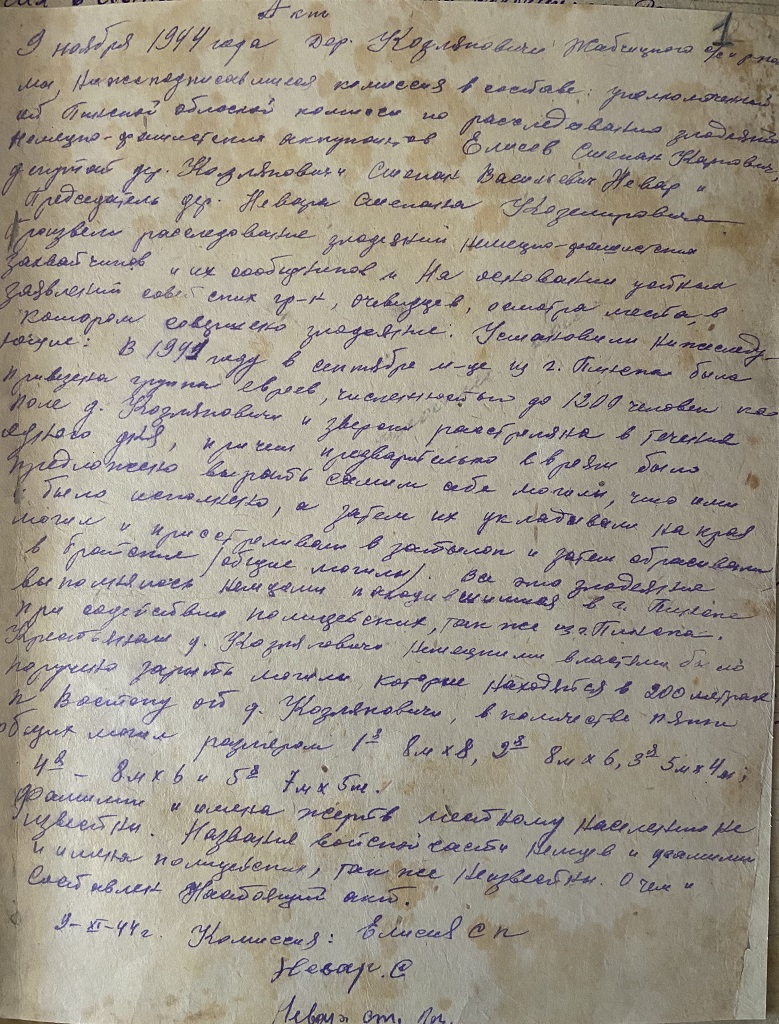 Акт
1
9 ноября 1944 года Дер. Козляковичи Жабчицкого с/с
мы, нижеподписавшиеся комиссия в составе: уполномоченный
от Пинской обласной комисси по расследованию злодеяний
немецко-фашистских аккупантов Елисев Степан Карпович,
депутат дер. Козлякович Степан Васильевич Невар и
Председатель дер. Невара Степана
произвели расследование злодеяний немецко-фашистских
захватчиков и их сообщников и На основании устных
заявлений советских гр-н, очевидцев, осмотра места, в
котором совершено злодеяние. Установили нижеследу-
ющие: В 1941 году в сентябре м-це из г. Пинска была
привезена группа евреев, численностью до 1200 человек на
поле д. Козляковичи и зверски расстреляна в течении
одного дня, причем предварительно евреям было
предложено вырыть самим себе могилы, что ими
и было исполнено, а затем их укладывали на края
могил и пристреливали в затылок и затем сбрасывали
в братские (общие могилы). Все это злодеяние
выполнялось немцами находившимися в г. Пинске
при содействии полицейских, так же из г. Пинска.
Крестьянам д. Козляковичи немецкими властями было
поручено зарыть могилы которые находятся в 200 метрах
к Востоку от д. Козляковичи, в количестве пяти
общих могил размером 1я 8м х 8, 2я 8м х 6, 3я 5м х 4м;
4я - 8м х 6 и 5я 7м х 5м.
Фамилии и имена жертв местному населению не
известны. Название войской части немцев и фамилии
и имена полицейских, так же неизвестны. О чем и
составлен Настоящий акт.
9-XI-44 г. Комиссия: Елисев С П
Невар. С
Невар ст.